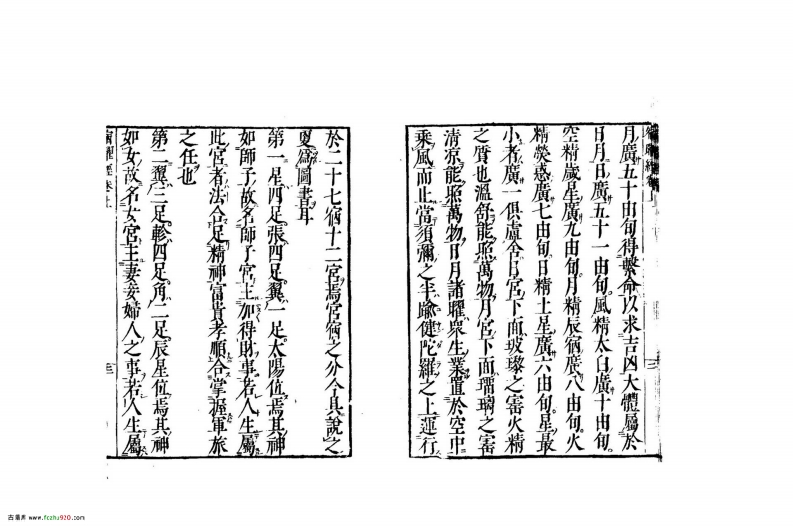 宿曜經卷上
月廣五十由旬得繫命以求吉凶大體屬於
日月日廣五十一由旬風精太白廣十由旬
空精歲星廣九由旬月精辰宿廣八由旬火
精熒惑廣七由旬日精土星廣六由旬星最
小者廣一俱盧舍日宮下面玻瓈之寶火精
之質也溫舒能照萬物月宮下面瑠璃之寶
清凉能照萬物日月諸曜衆生業置於空中
乘風而止當須彌之半踰健陀羅之上運行
於二十七宿十二宮焉宮宿之分今具說之
更爲圖書耳
第一星四足張四足翼一足太陽位焉其神
如師子故名師子宮主加得財事若人生屬
此宮者法合足精神富貴孝順合掌握軍旅
之任也
第二翼三足軫四足角二足辰星位焉其神
如女故名女宮主妻妾婦人之事若人生屬
宿曜經卷上
三
古籍库 www.fczhu920.com